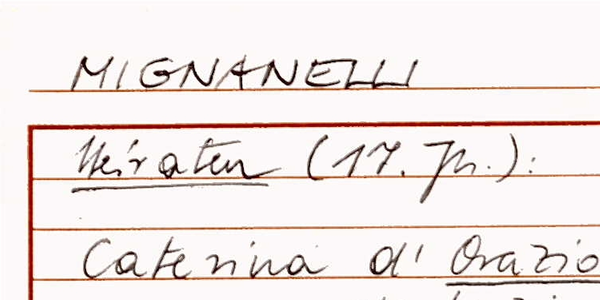 MIGNANELLI
Heiraten (17. Jh.):
Caterina d' Orazio